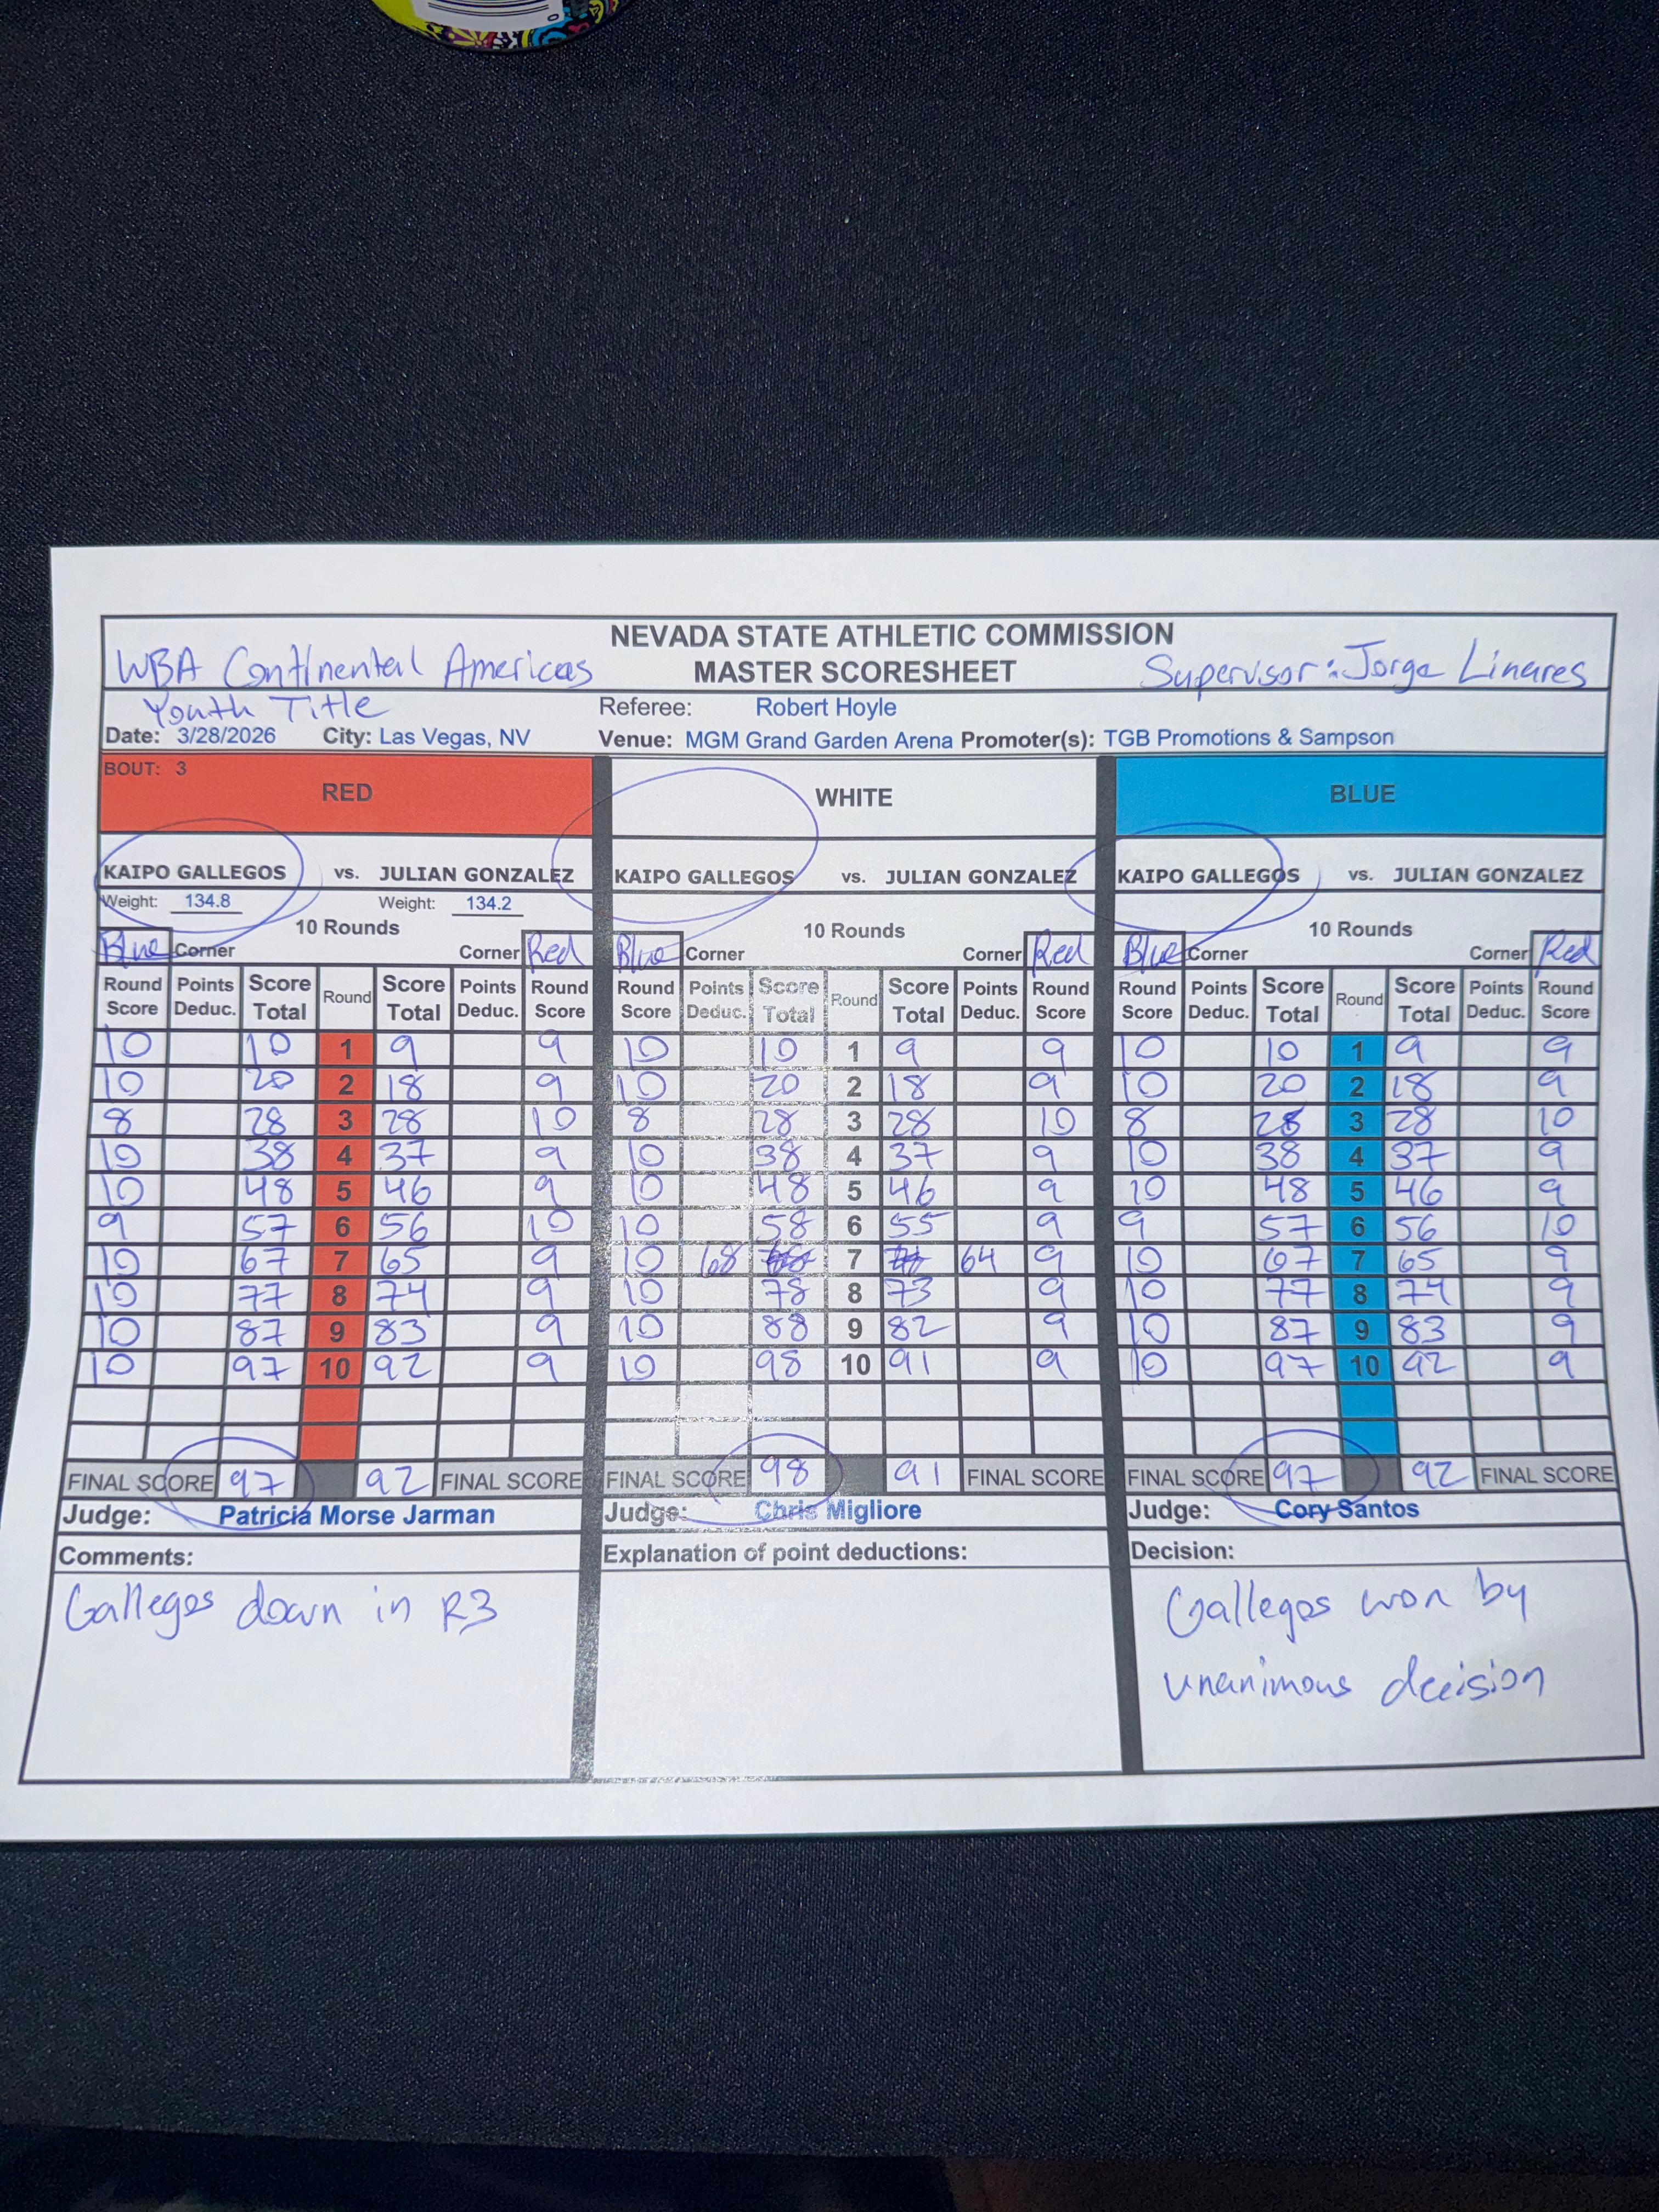 NEVADA STATE ATHLETIC COMMISSION
WBA Continental Americas MASTER SCORESHEET Supervisor: Jorge Linares
Youth Title Referee: Robert Hoyle
Date: 3/28/2026 City: Las Vegas, NV Venue: MGM Grand Garden Arena Promoter(s): TGB Promotions & Sampson
BOUT: 3
RED WHITE BLUE
KAIPO GALLEGOS vs. JULIAN GONZALEZ KAIPO GALLEGOS vs. JULIAN GONZALEZ KAIPO GALLEGOS vs. JULIAN GONZALEZ
Weight: 134.8 Weight: 134.2
10 Rounds 10 Rounds 10 Rounds
Blue Corner Corner Red Blue Corner Corner Red Blue Corner Corner Red
Round Points Score Round Score Points Round Round Points Score Round Score Points Round Round Points Score Round Score Points Round
Score Deduc. Total Total Deduc. Score Score Deduc. Total Total Deduc. Score Score Deduc. Total Total Deduc. Score
10 10 1 9 9 10 10 1 9 9 10 10 1 9 9
10 20 2 18 9 10 20 2 18 9 10 20 2 18 9
8 28 3 28 10 8 28 3 28 10 8 28 3 28 10
10 38 4 37 9 10 38 4 37 9 10 38 4 37 9
10 48 5 46 9 10 48 5 46 9 10 48 5 46 9
9 57 6 56 10 10 58 6 55 9 9 57 6 56 10
10 67 7 65 9 10 68 7 64 9 10 67 7 65 9
10 77 8 74 9 10 78 8 73 9 10 77 8 74 9
10 87 9 83 9 10 88 9 82 9 10 87 9 83 9
10 97 10 92 9 10 98 10 91 9 10 97 10 92 9
FINAL SCORE 97 92 FINAL SCORE FINAL SCORE 98 91 FINAL SCORE FINAL SCORE 97 92 FINAL SCORE
Judge: Patricia Morse Jarman Judge: Chris Migliore Judge: Cory Santos
Comments: Explanation of point deductions: Decision:
Gallegos down in R3 Gallegos won by
unanimous decision